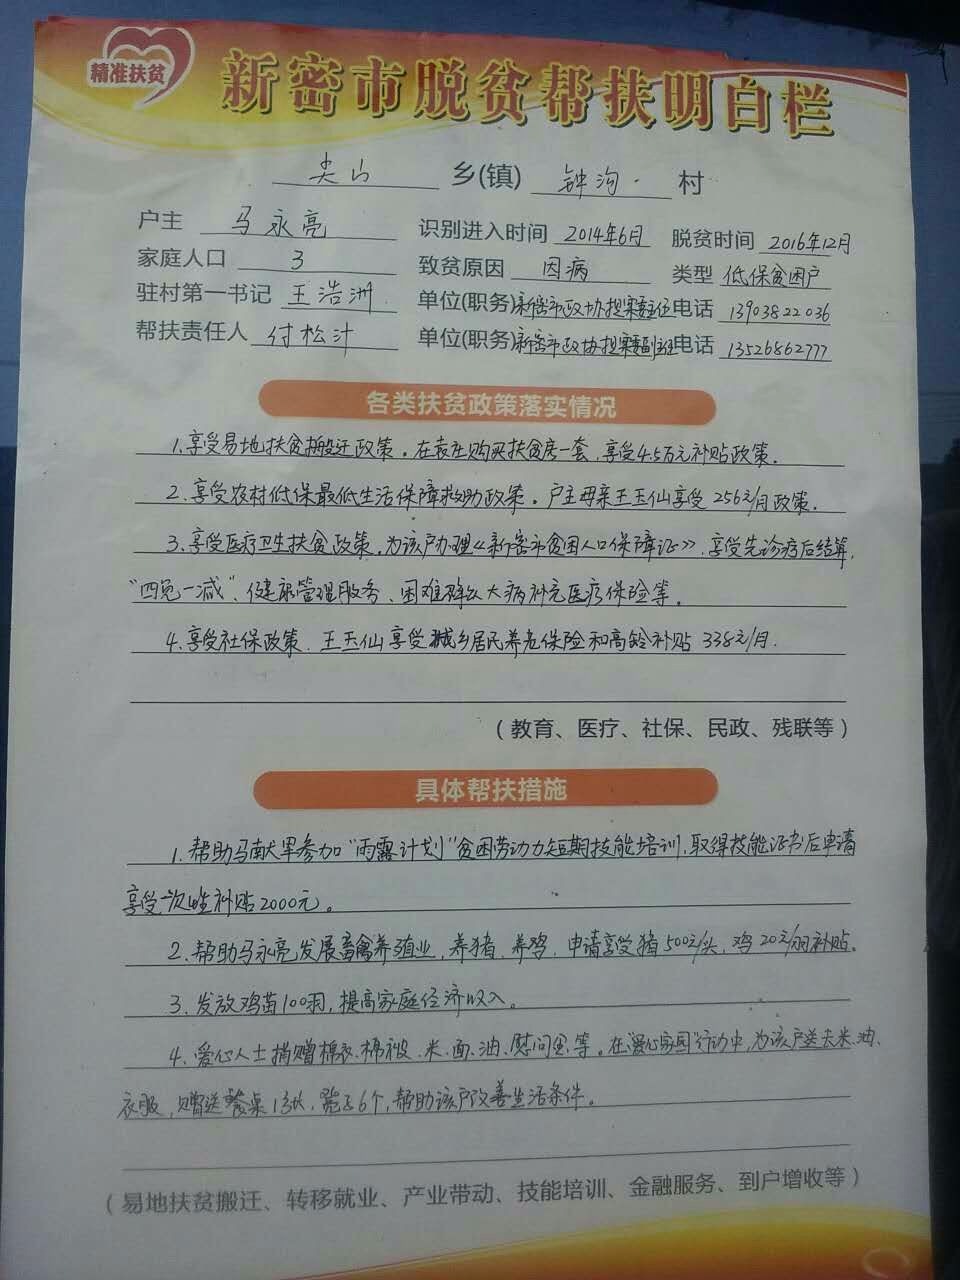 精准扶贫
新密市脱贫帮扶明白栏
尖山 乡(镇) 钟沟 村
户主 马永亮 识别进入时间 2014年6月 脱贫时间 2016年12月
家庭人口 3 致贫原因 因病 类型 低保贫困户
驻村第一书记 王浩洲 单位(职务) 新密市政协提案委主任 电话 13903822036
帮扶责任人 付松汁 单位(职务) 新密市政协提案委副主任 电话 13526862777
各类扶贫政策落实情况
1.享受易地扶贫搬迁政策。在袁庄购买扶贫房一套,享受4.5万元补贴政策.
2.享受农村低保最低生活保障救助政策。户主母亲王玉仙享受256元/月政策.
3.享受医疗卫生扶贫政策,为该户办理《新密市贫困人口保障证》,享受先诊疗后结算,
“四免一减”、健康管理服务、困难群众大病补充医疗保险等。
4.享受社保政策、王玉仙享受城乡居民养老保险和高龄补贴 338元/月.
(教育、医疗、社保、民政、残联等)
具体帮扶措施
1.帮助马参加“雨露计划”贫困劳动力短期技能培训,取得技能证书后申请
享受一次性补贴2000元。
2.帮助马永亮发展畜禽养殖业,养猪、养鸡,申请享受猪500元/头、鸡20元/羽补贴。
3.发放鸡苗100羽,提高家庭经济收入。
4.爱心人士捐赠棉衣、棉被、米、面、油、慰问金等。在“爱心家园”行动中,为该户送去米、油、
衣服,赠送餐桌1张,凳子6个,帮助该户改善生活条件。
(易地扶贫搬迁、转移就业、产业带动、技能培训、金融服务、到户增收等)